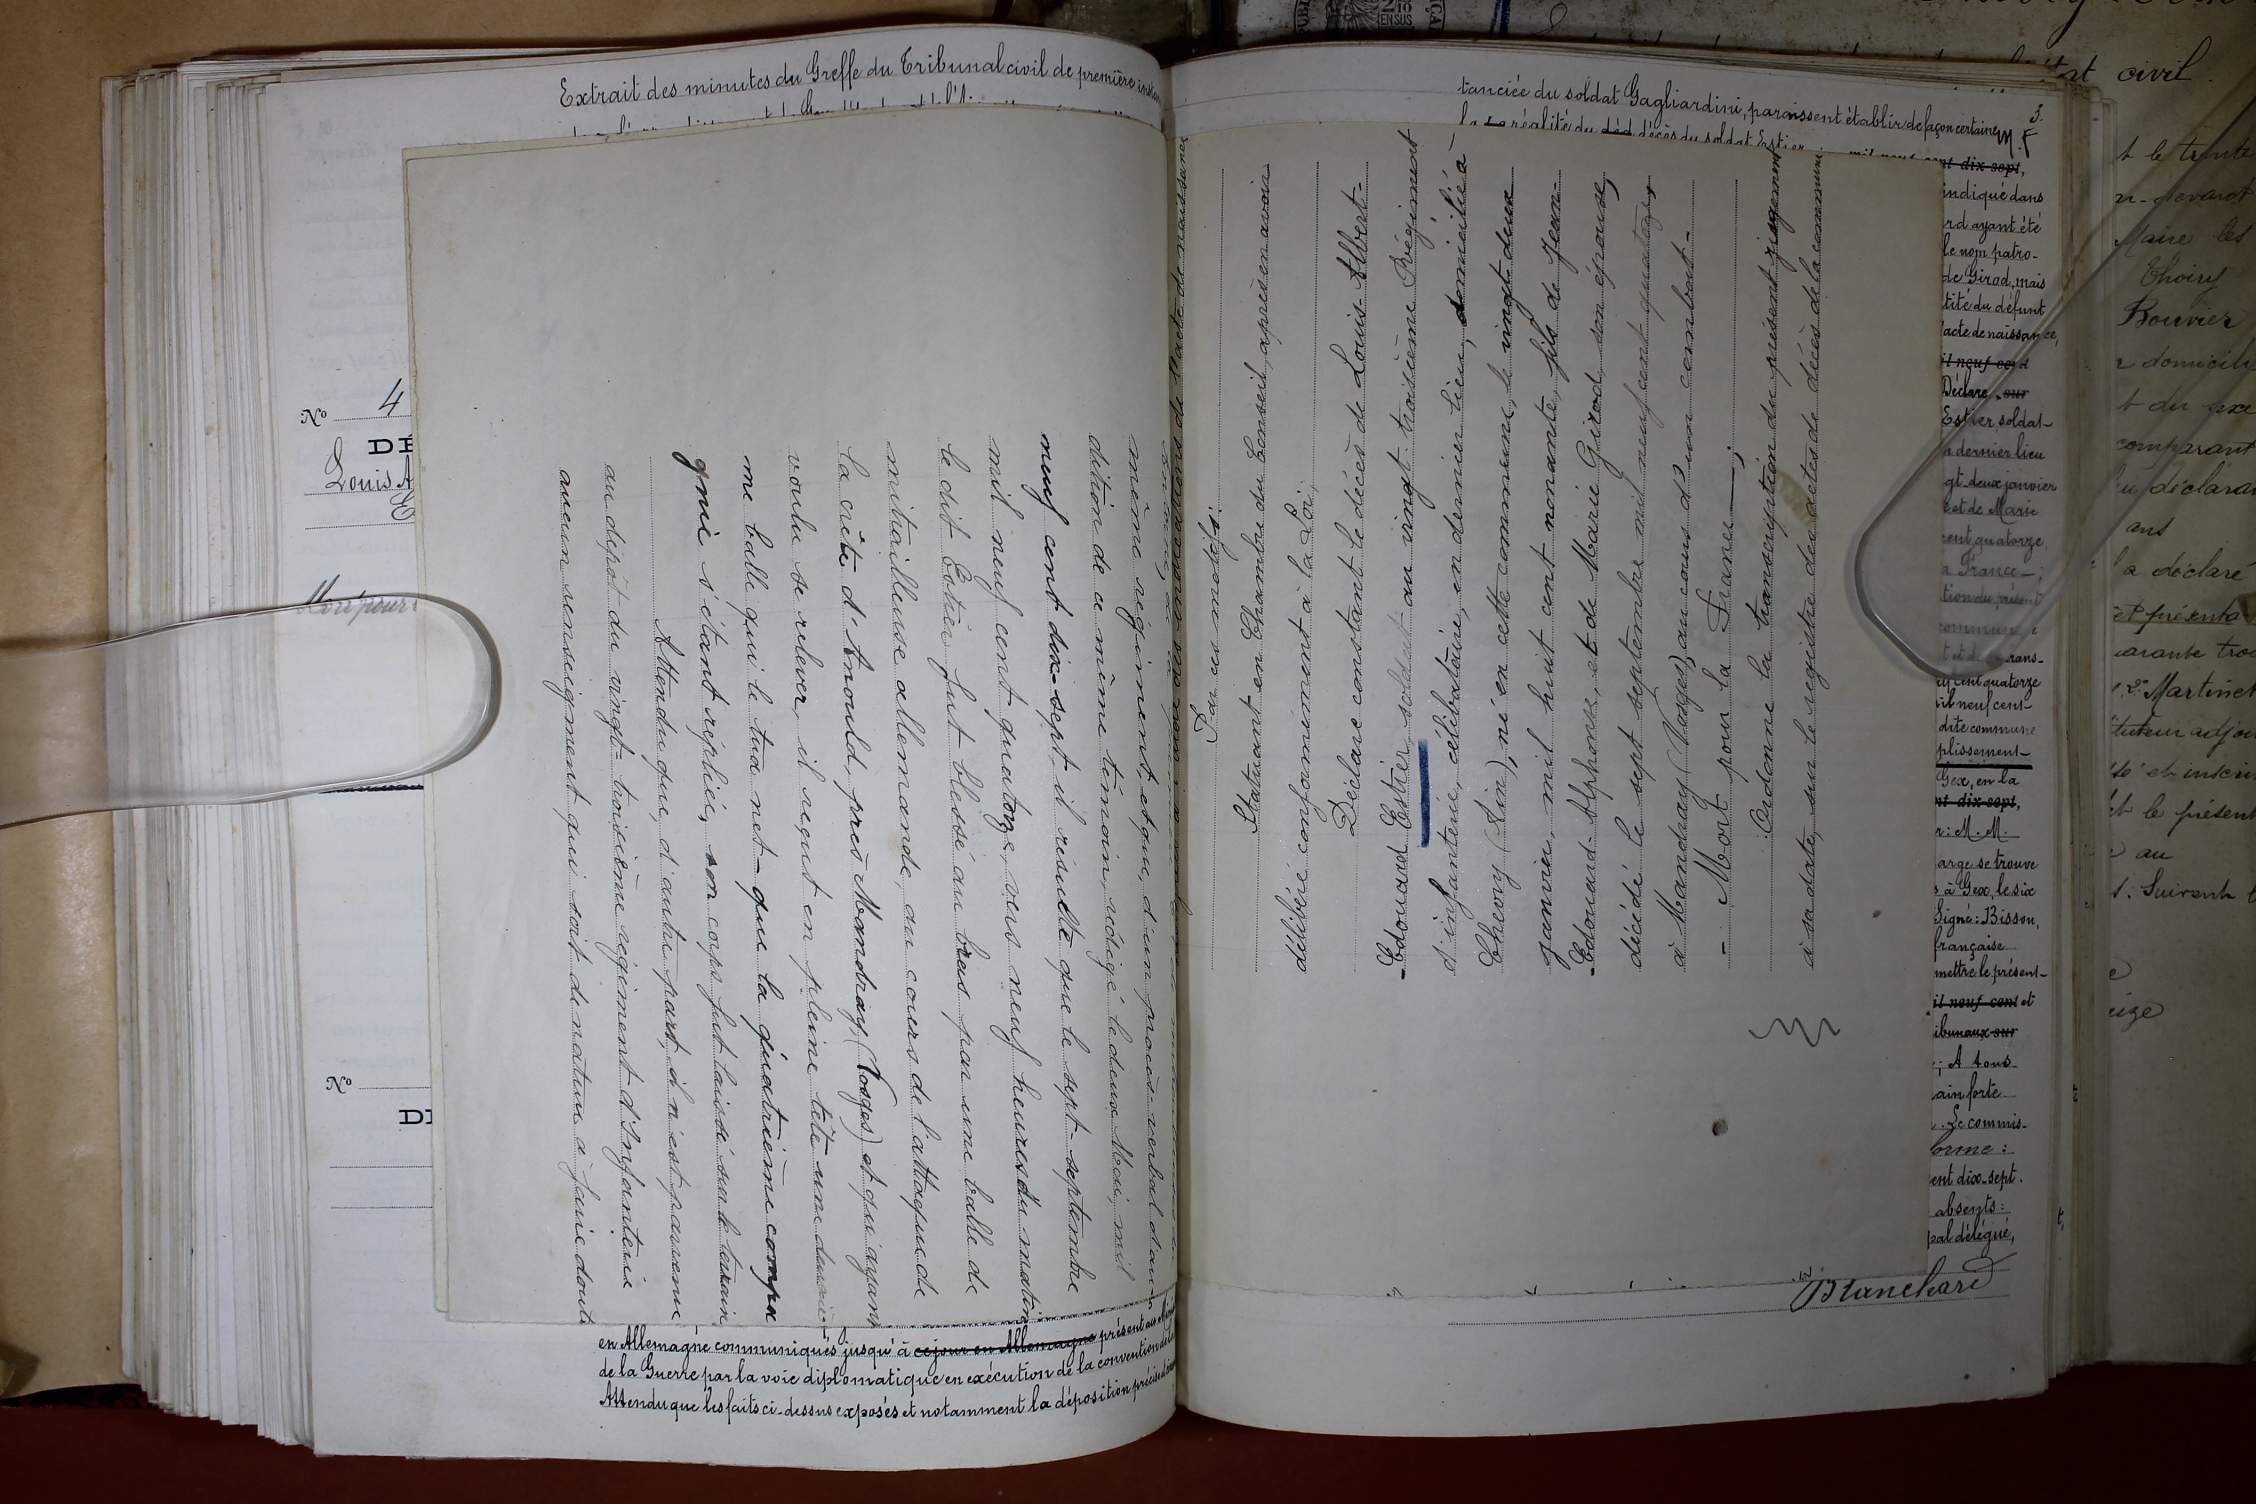 Extrait des minutes du Greffe du Tribunal civil de première
No 4
DÉ
Louis A
E
Mort pour
No
DÉ
même régiment, et que, d'un procès-verbal d'au-
dition de ce même témoin, rédigé le deux Mai, mil
neuf cent dix-sept, il résulte que le sept septembre
mil neuf cent quatorze, vers neuf heures du matin
le dit Estier fut blessé au bras par une balle de
mitrailleuse allemande, au cours de l'attaque de
la crête d'Anould, près Mandray (Vosges) et qu'ayant
voulu se relever, il reçut en pleine tête une deuxiè
me balle qui le tua net - que la quatrième compa
gnie s'étant repliée, son corps fut laissé sur le terrain
Attendu que, d'autre part, il n'est parvenu
au dépôt du vingt-troisième régiment d'Infanterie
aucun renseignement qui soit de nature à faire douter
en Allemagne communiqués jusqu'à ce jour en Allemagne présent au
de la Guerre par la voie diplomatique en exécution de la convention de
Attendu que les faits ci-dessus exposés et notamment la déposition précise
3.
tanciée du soldat Gagliardini, paraissent établir de façon certaine
la réalité du déd décès du soldat Estier
M. F
Par ces motifs:
Statuant en Chambre du Conseil, après en avoir
délibéré conformément à la Loi;
Déclare constant le décès de Louis-Albert-
Edouard Estier, soldat au vingt-troisième Régiment
d'infanterie, célibataire, en dernier lieu, domicilié à
Chevry (Ain), né en cette commune, le vingt-deux
janvier, mil huit cent nonante, fils de Jean-
Edouard-Alphonse, et de Marie Girod, son épouse,
décédé le sept septembre mil neuf cent quatorze,
à Mandray (Vosges), au cours d'un combat -
- Mort pour la France -;
Ordonne la transcription du présent jugement
à sa date, sur le registre des actes de décès de la commune
nt dix-sept,
indiqué dans
rd ayant été
le nom patro-
de Girod, mais
tité du défunt
l'acte de naissance,
il neuf cent
Déclare sur
Estier soldat
dernier lieu
gt-deux janvier
e et de Marie
cent quatorze
a France -;
tion du présent
commune
rans-
cent quatorze
il neuf cent
dite commune
plissement
Gex, en la
nt dix-sept,
r: M. M.
arge se trouve
s à Gex, le six
Signé: Bisson,
française
mettre le présent
il neuf cent et
ibunaux sur
; A tous
ain forte
. Le commis-
orme:
ent dix-sept.
absents:
pal délégué,
Blanchard
état civil.
t le trente
Maire les
Choisy
Bouvier
domicile
comparant
u déclara
ans
a déclaré
et présenta
uarante trois
2° Martinet
tuteur adjoi
et inscri
t le présent
au
Suivent l
eize